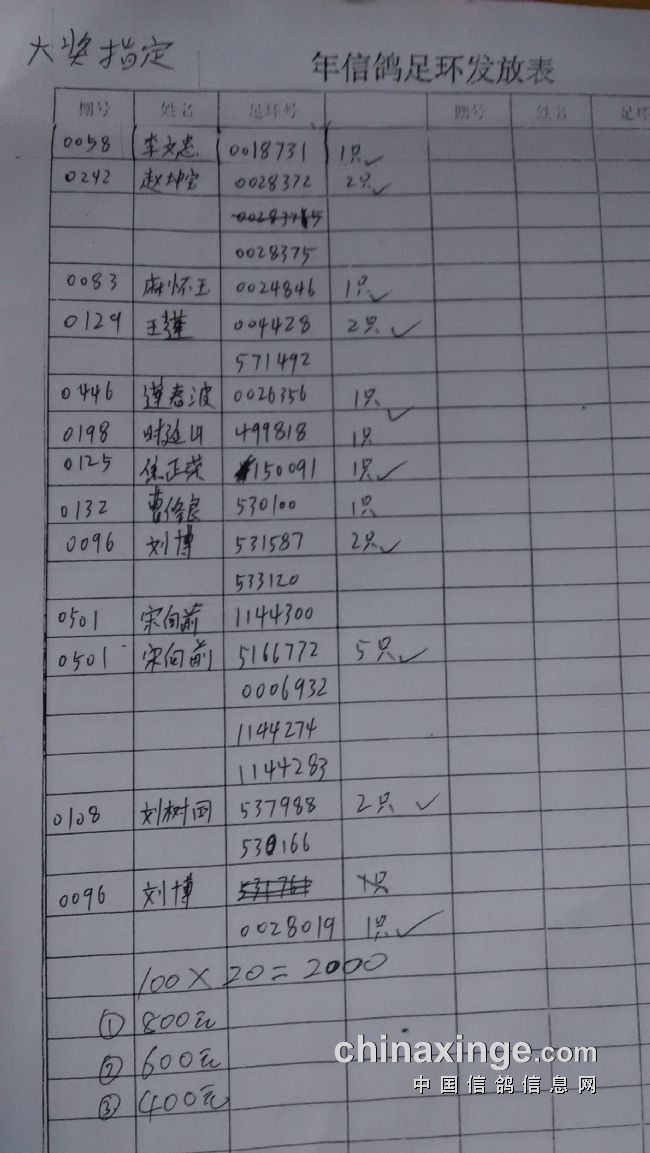 大奖指定
年信鸽足环发放表
棚号 姓名 足环号 棚号 姓名 足环
0058 李文忠 0018731 1只✓
0242 赵坤宝 0028372 2只✓
0028375
0083 麻怀玉 0024846 1只✓
0129 王莲 004428 2只✓
571492
0446 莲春波 0026356 1只✓
0198 499818 1只
0125 徐正荣 150091 1只✓
0132 曹修良 530100 1只
0096 刘博 531587 2只✓
533120
0501 宋向前 1144300
0501 宋向前 5166772 5只✓
0006932
1144274
1144283
0108 刘树田 537988 2只✓
530166
0096 刘博 1只
0028019 1只✓
100×20=2000
① 800元
② 600元
③ 400元
chinaxinge.com
中国信鸽信息网